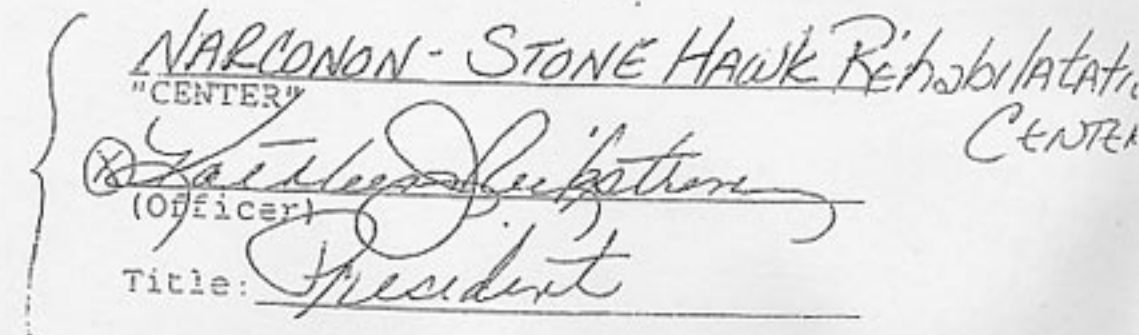 NARCONON - STONE HAWK Rehabilatati
CENTER
"CENTER"
(X) Kathleen
(Officer)
Title: President